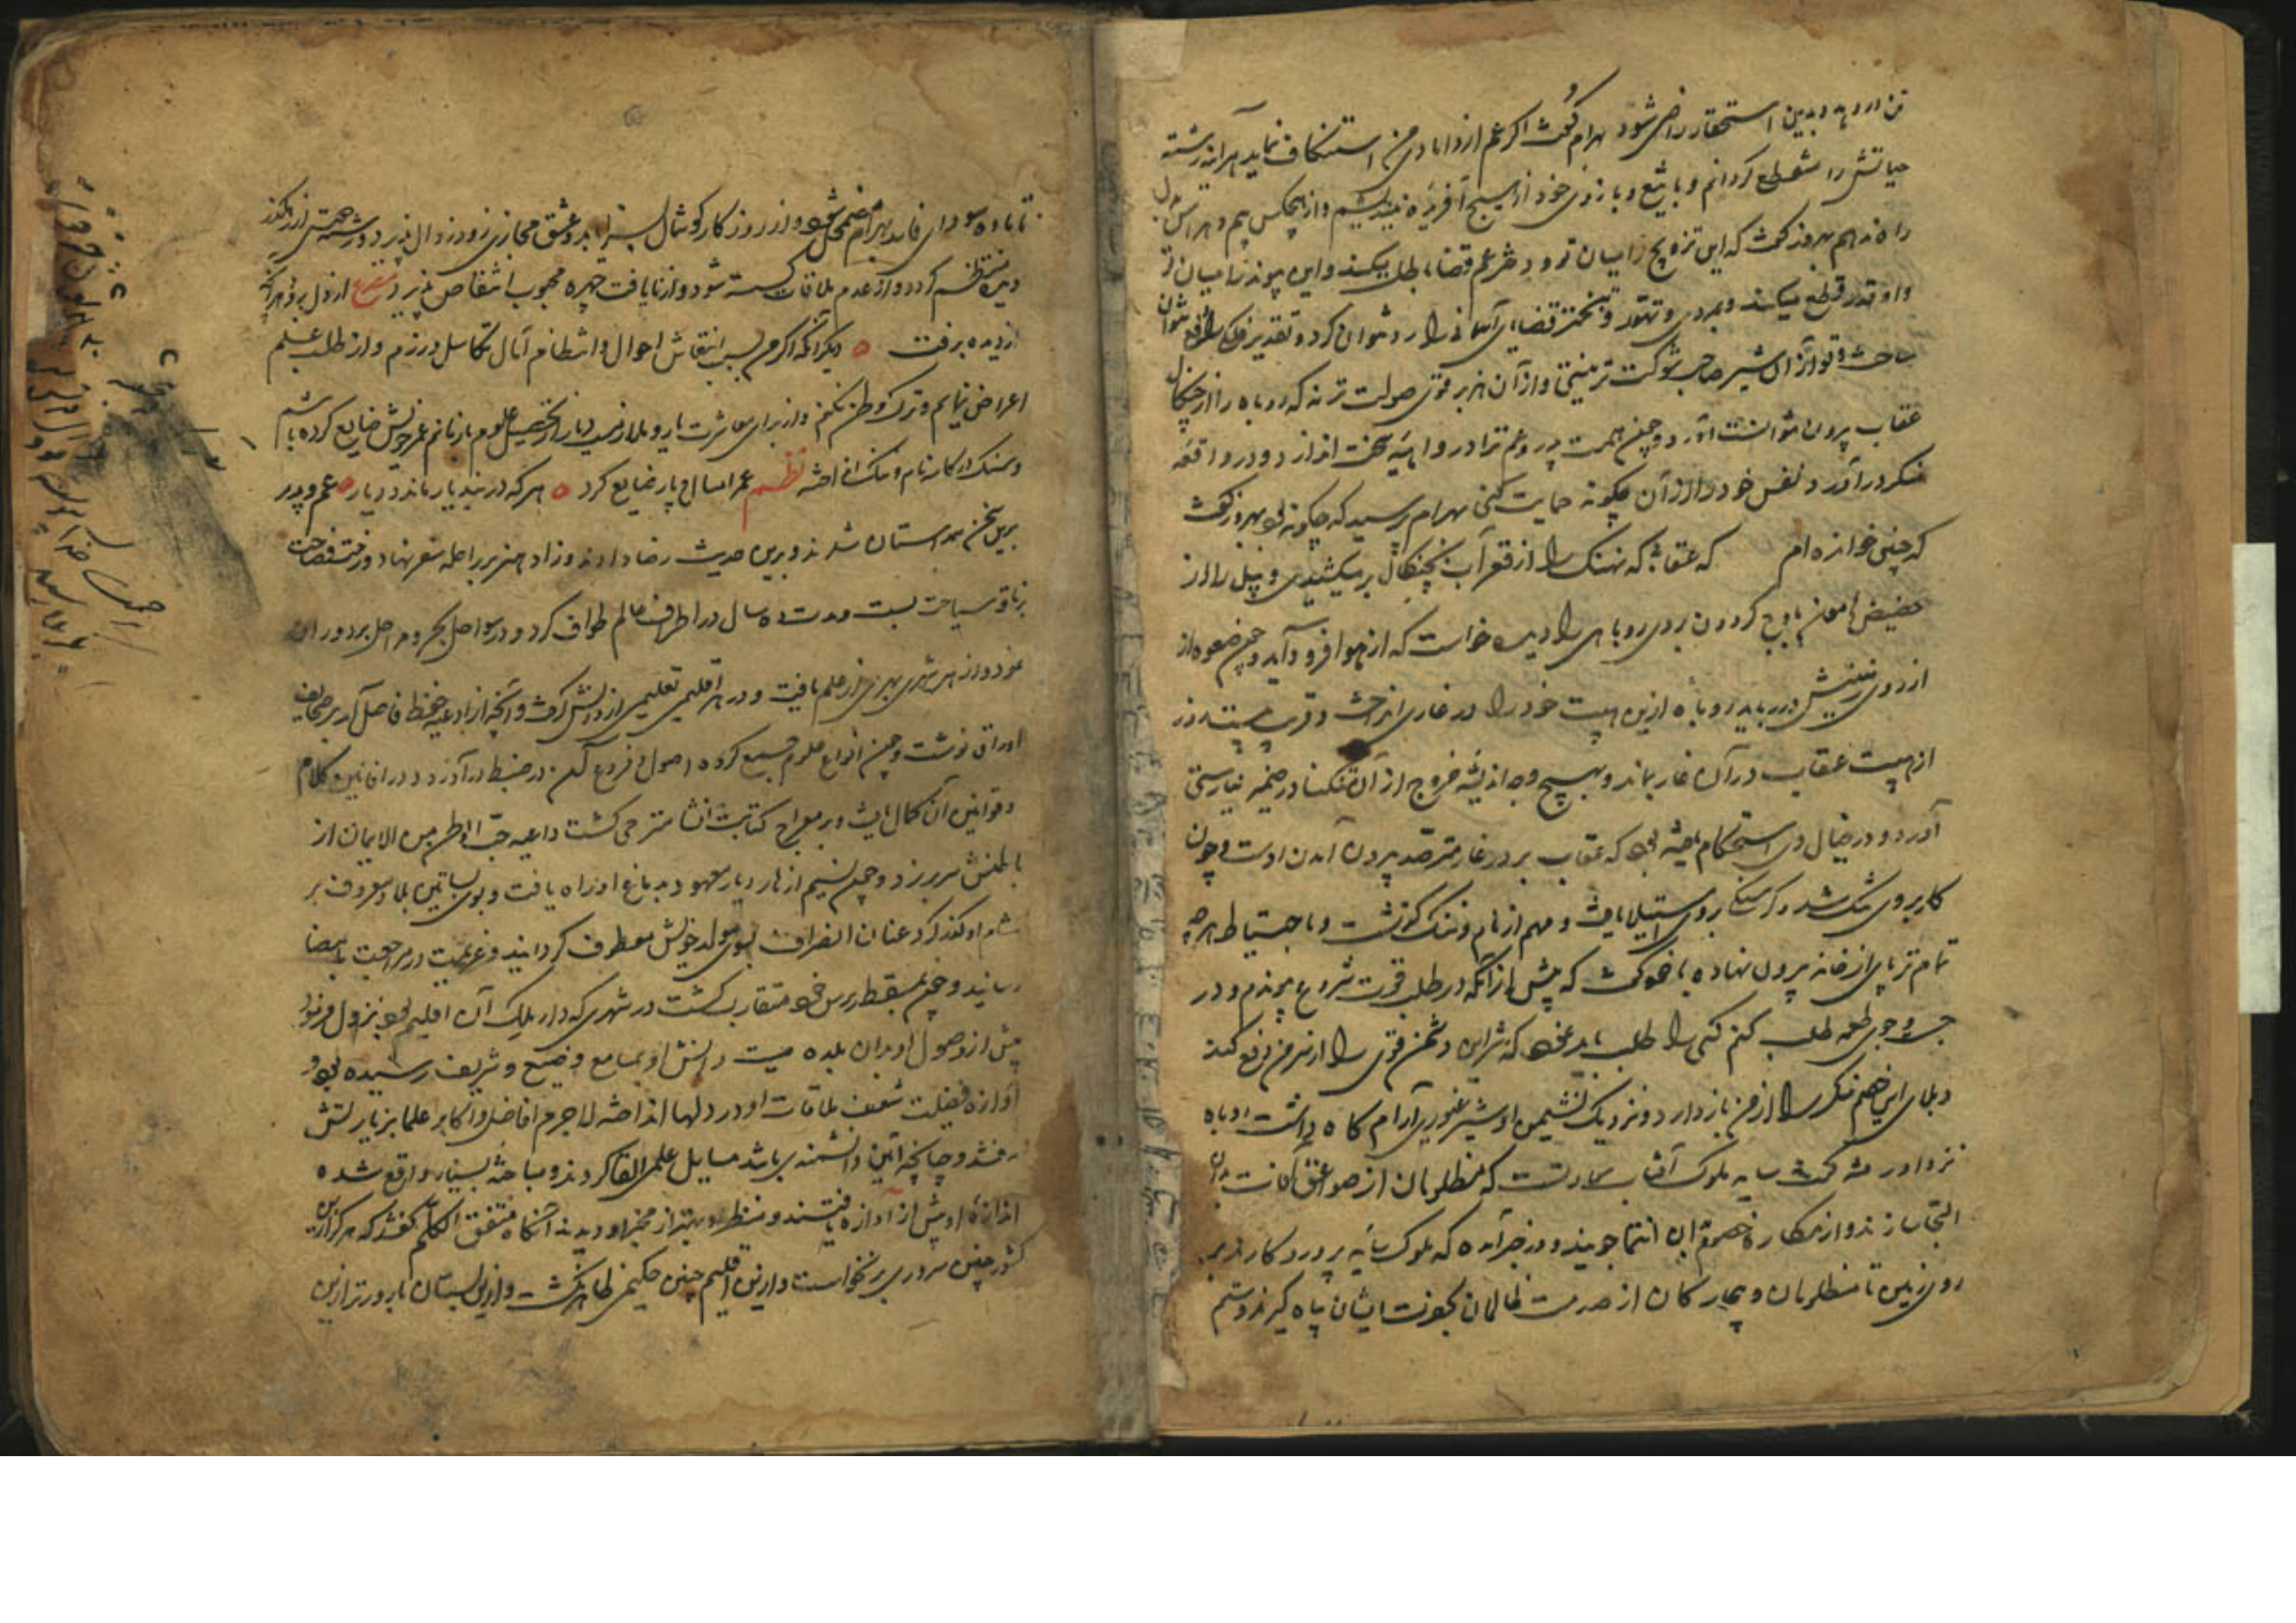 تن در دهد و بدین استحقار راضی شود بهرام گفت اگر عم از دامادی من استنکاف نماید هر آینه رشته
حیاتش را منقطع گردانم و با تیغ و بازوی خود از هیچ آفریده نیندیشم و از هیچکس بیم و هراس بدل
راه ندهم بهروز گفت که این تزویج را میان تو و دختر عم قضا باطل میکند و این پیوند را میان تو
و او قدر قطع میکند و بمردی و تهور و تبختر قضای آسمانی را رد نتوان کرد و تقدیر فلکی را دفع نتوان
ساخت و تو از آن شیر صاحب شوکت تر نیستی و از آن هزبر قوی صولت تر نه که روباه را از چنگال
عقاب بیرون نتوانست آورد و چون همت پدر و عم ترا در واهیه سخت اندازد و در واقعه
منکر در آورد نفس خود را از آن چگونه حمایت کنی بهرام پرسید که چگونه بود بهروز گفت
که چنین خوانده ام که عقابی که نهنگ را از قعر آب بچنگال بر میکشیدی و پیل را از
حضیض هامون باوج گردون بردی روباهی را دید خواست که از هوا فرود آید و چون صعوه از
از روی زمینش در رباید روباه ازین هیبت خود را در غاری انداخت و قریب بیست روز
از هیبت عقاب در آن غار بماند و بهیچ وجه اندیشه خروج از آن تنگنا در ضمیر نیارستی
آورد و در خیال وی استحکام یافته بود که عقاب بر در غار مترصد بیرون آمدن اوست و چون
کار بر وی تنگ شد و گرسنگی بر وی استیلا یافت و مهم از نام و ننگ گذشت و با احتیاط هر چه
تمام تر پای از خانه بیرون نهاده با خود گفت که پیش از آنکه در طلب قوت شروع پیوندم و در
جست و جوی طعمه طلب کنم کسی را طلب باید نمود که شر این دشمن قوی را از سر من دفع کند
و بلای این خصم منکر را از من باز دارد و نزدیک نشیمن او شیر غیوری آرام گاه داشت روباه
نزد او رفته گفت سایه ملوک آفتاب سعادتست که مظلومان از صواعق آفات بدان
التجا سازند و از مکاره خصم قوی بدان انتما جویند و در خبر آمده که ملوک سایه پروردگارند بر
روی زمین تا مظلومان و بیچارگان از صدمت ظالمان بعونت ایشان پناه گیرند و ستم
تا ماده سودای فاسد بهرام مضمحل شود و از روزگار گوشمال بسزا یابد و عشق مجازی زود زوال پذیرد و رشته صحبتی از یکدیگر
دیر منتظم گردد و از عدم ملاقات گسسته شود و از نایافت چهره محبوب انتقاص پذیرد مصرع از دل برود هر آنچه
از دیده برفت ه دیگر آنکه اگر من بسبب انتعاش احوال و انتظام آمال تکاسل ورزم و از طلب علم
اعراض نمایم و ترک وطن نکنم و از برای معاشرت یار و ملازمت دیار از تحصیل علوم باز مانم عمر خویش ضایع کرده باشم
و سنگ در کارنام و ننگ انداخته نظم عمر امسال و پار ضایع کرد ه هر که در بند یار ماند و دیار ه عم و پدر
برین سخن همداستان شدند و برین حدیث رضا دادند و زاد هنر بر راحله سفر نهاد و رخت فصاحت
بر ناقه سیاحت بست مدت ده سال در اطراف عالم طواف کرد و در سواحل بحر و مراحل بر دوران
نمود و از هر شهری بهری از علم یافت و در هر اقلیمی تعلیمی از دانش گرفت و آنچه از اوعیه حفظ فاضل آمد بر صحایف
اوراق نوشت و چون انواع علوم جمع کرده اصول و فروع آن در ضبط در آورد و در افانین کلام
و قوانین آن کمال یافت و بر معراج کتابت انشا مترقی گشت داعیه حب الوطن من الایمان از
باطنش سر برزد و چون نسیم ازهار دیار معهود بدماغ او راه یافت و بوی بساتین بلاد معروف بر
مشام او گذر کرد عنان انصراف بسوی مولد خویش معطوف گردانید و عزیمت در مراجعت بامضا
رسانید و چون بمسقط راس خود متقارب گشت در شهری که دار ملک آن اقلیم بود نزول فرمود
پیش از وصول او بدان بلده صیت دانش او بمسامع وضیع و شریف رسیده بود و
آوازه فضیلت شعف ملاقات او در دلها انداخته لاجرم افاضل و اکابر علما بزیارتش
رفتند و چنانچه آیین دانشمندی باشد مسایل علمی القا کردند و مباحثه بسیار واقع شده
اندازه او بیش از آوازه یافتند و منظر او بهتر از مخبر او دیدند آنگاه متفق الکلم گفتند که هرگز ازین
کشور چنین سروری برنخواست و ازین اقلیم چنین حکیمی ظاهر نگشت و ازین بستان بارور تر ازین